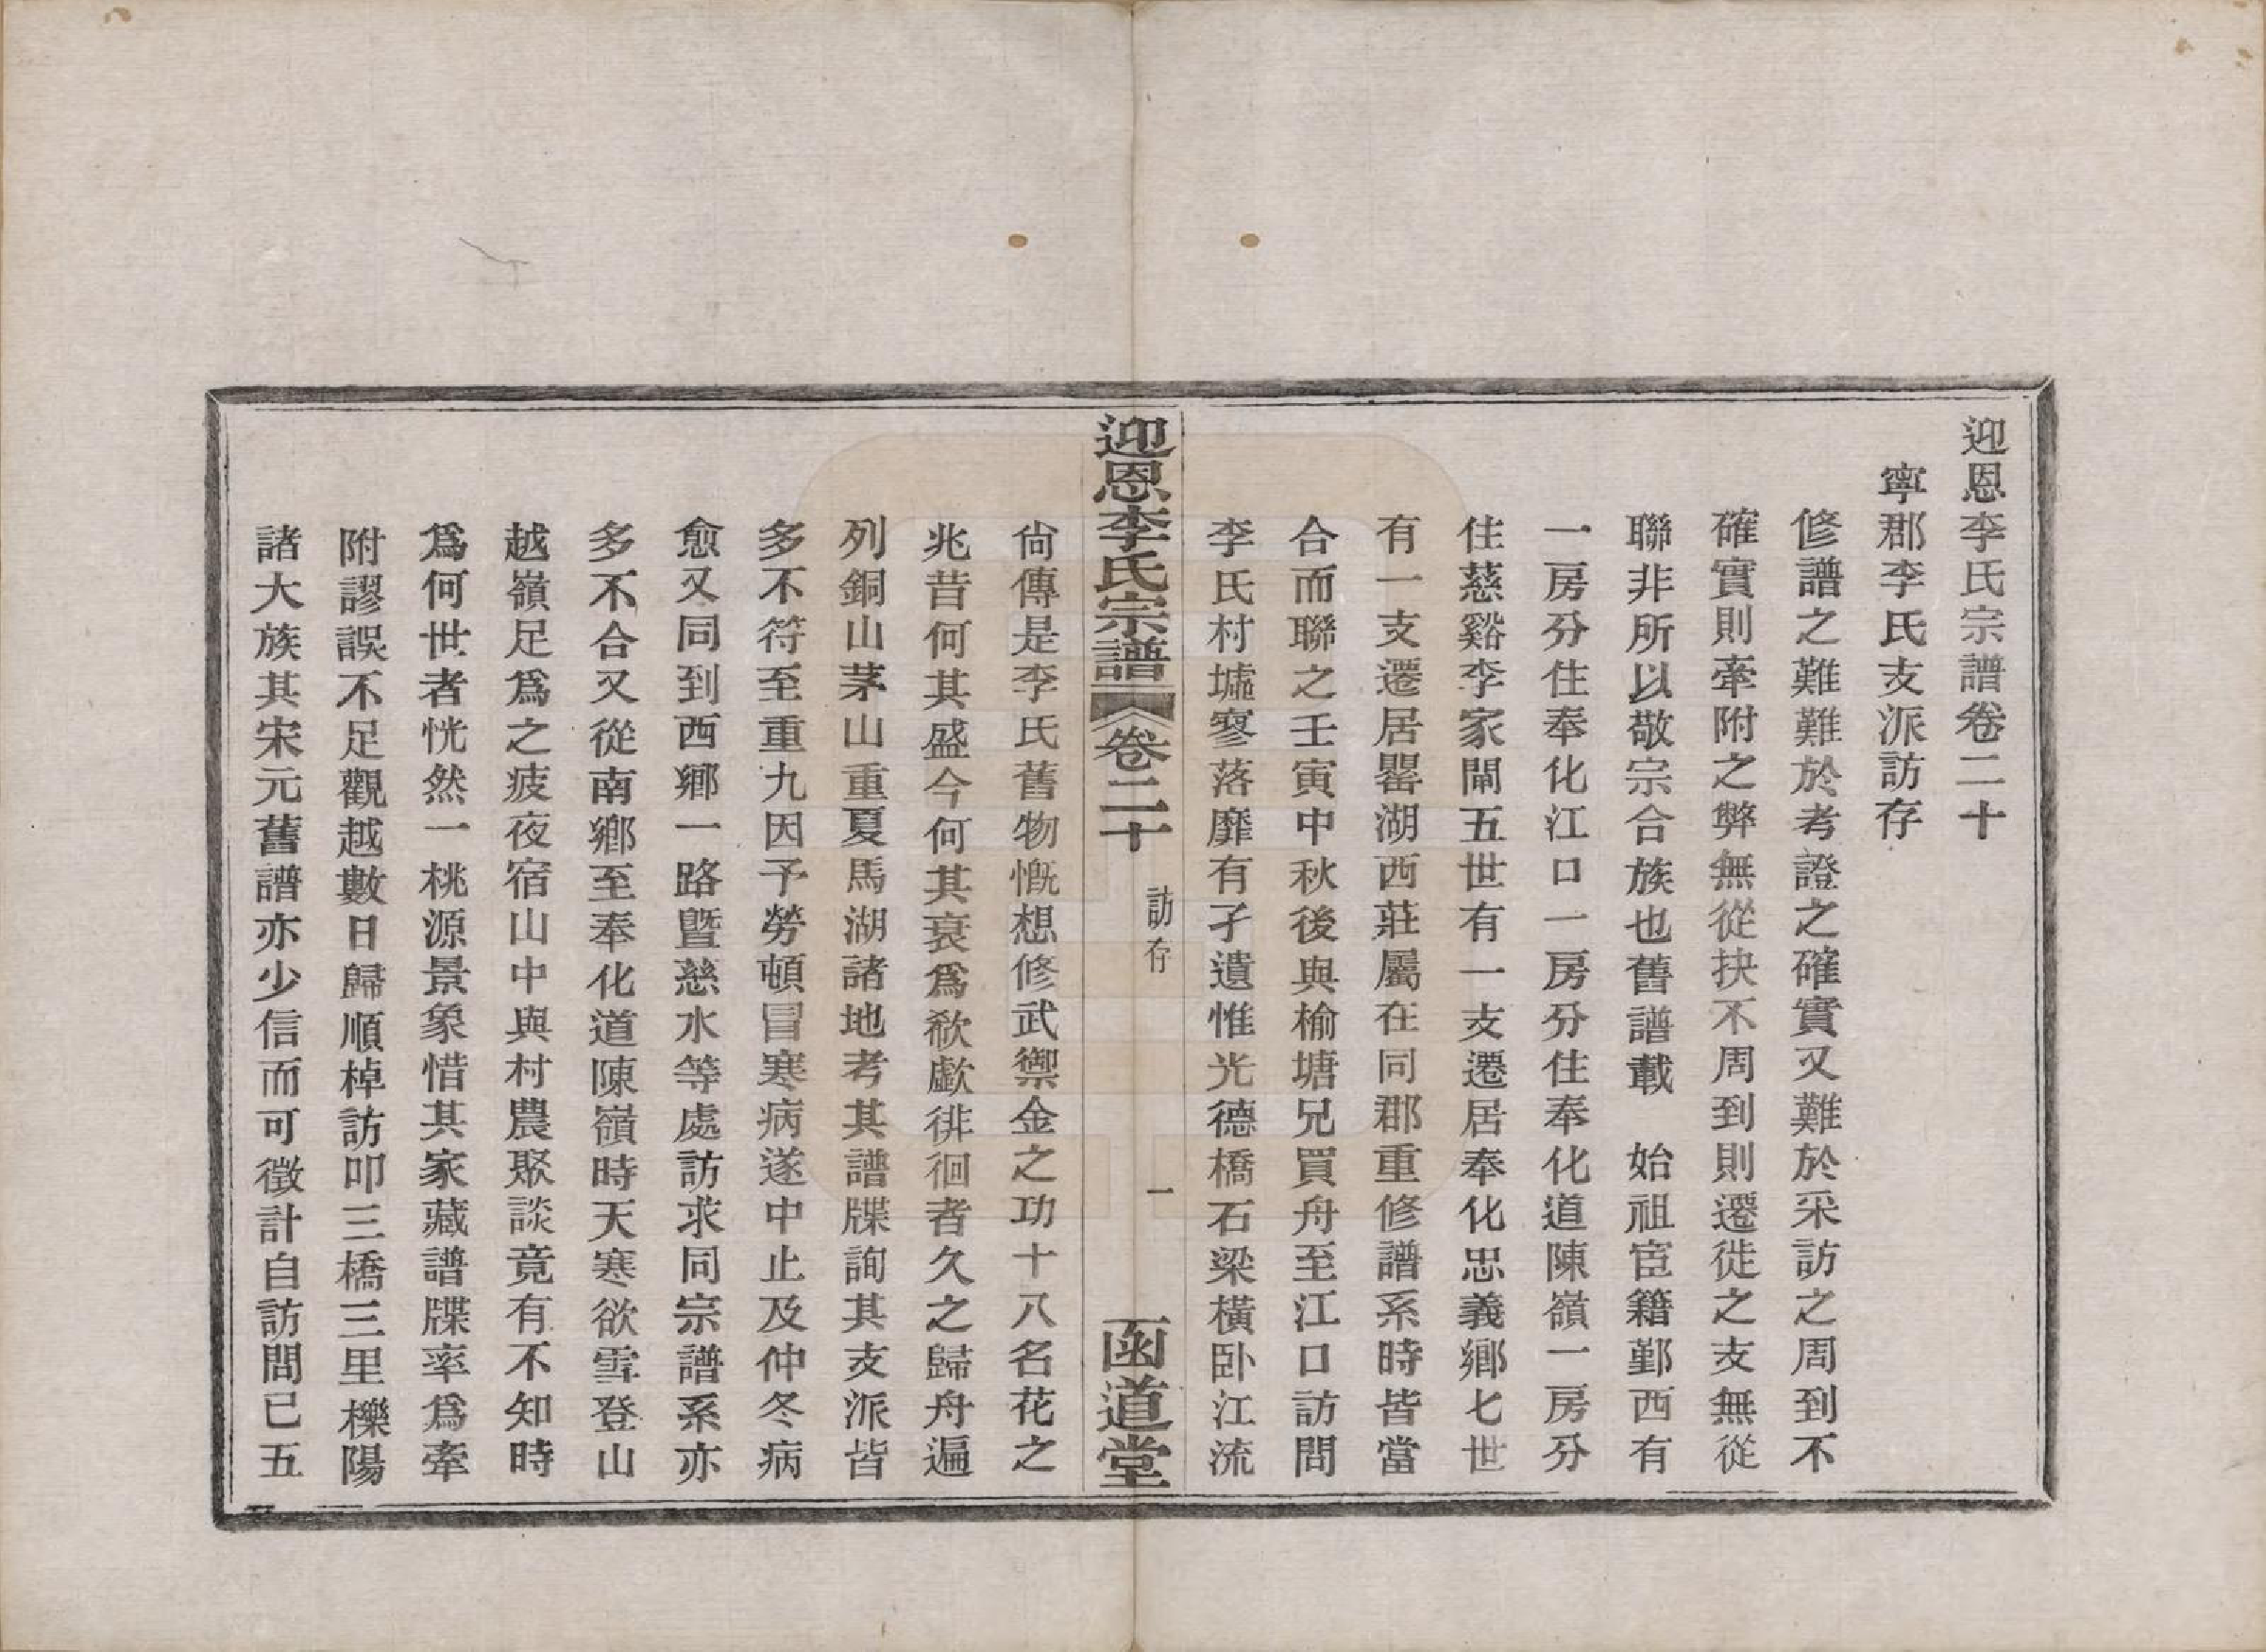 迎恩李氏宗譜卷二十
寧郡李氏支派訪存
修譜之難難於考證之確實又難於采訪之周到不
確實則牽附之弊無從抉不周到則遷徙之支無從
聯非所以敬宗合族也舊譜載　始祖宦籍鄞西有
一房分住奉化江口一房分住奉化道陳嶺一房分
住慈谿李家閘五世有一支遷居奉化忠義鄉七世
有一支遷居罌湖西莊屬在同郡重修譜系時皆當
合而聯之壬寅中秋後與榆塘兄買舟至江口訪問
李氏村墟寥落靡有孑遺惟光德橋石梁橫卧江流
迎恩李氏宗譜
卷二十
訪存
一
函道堂
尙傳是李氏舊物慨想修武禦金之功十八名花之
兆昔何其盛今何其衰爲欷歔徘徊者久之歸舟遍
列銅山茅山重夏馬湖諸地考其譜牒詢其支派皆
多不符至重九因予勞頓冒寒病遂中止及仲冬病
愈又同到西鄉一路暨慈水等處訪求同宗譜系亦
多不合又從南鄉至奉化道陳嶺時天寒欲雪登山
越嶺足爲之疲夜宿山中與村農聚談竟有不知時
爲何世者恍然一桃源景象惜其家藏譜牒率爲牽
附謬誤不足觀越數日歸順棹訪叩三橋三里櫟陽
諸大族其宋元舊譜亦少信而可徵計自訪問已五